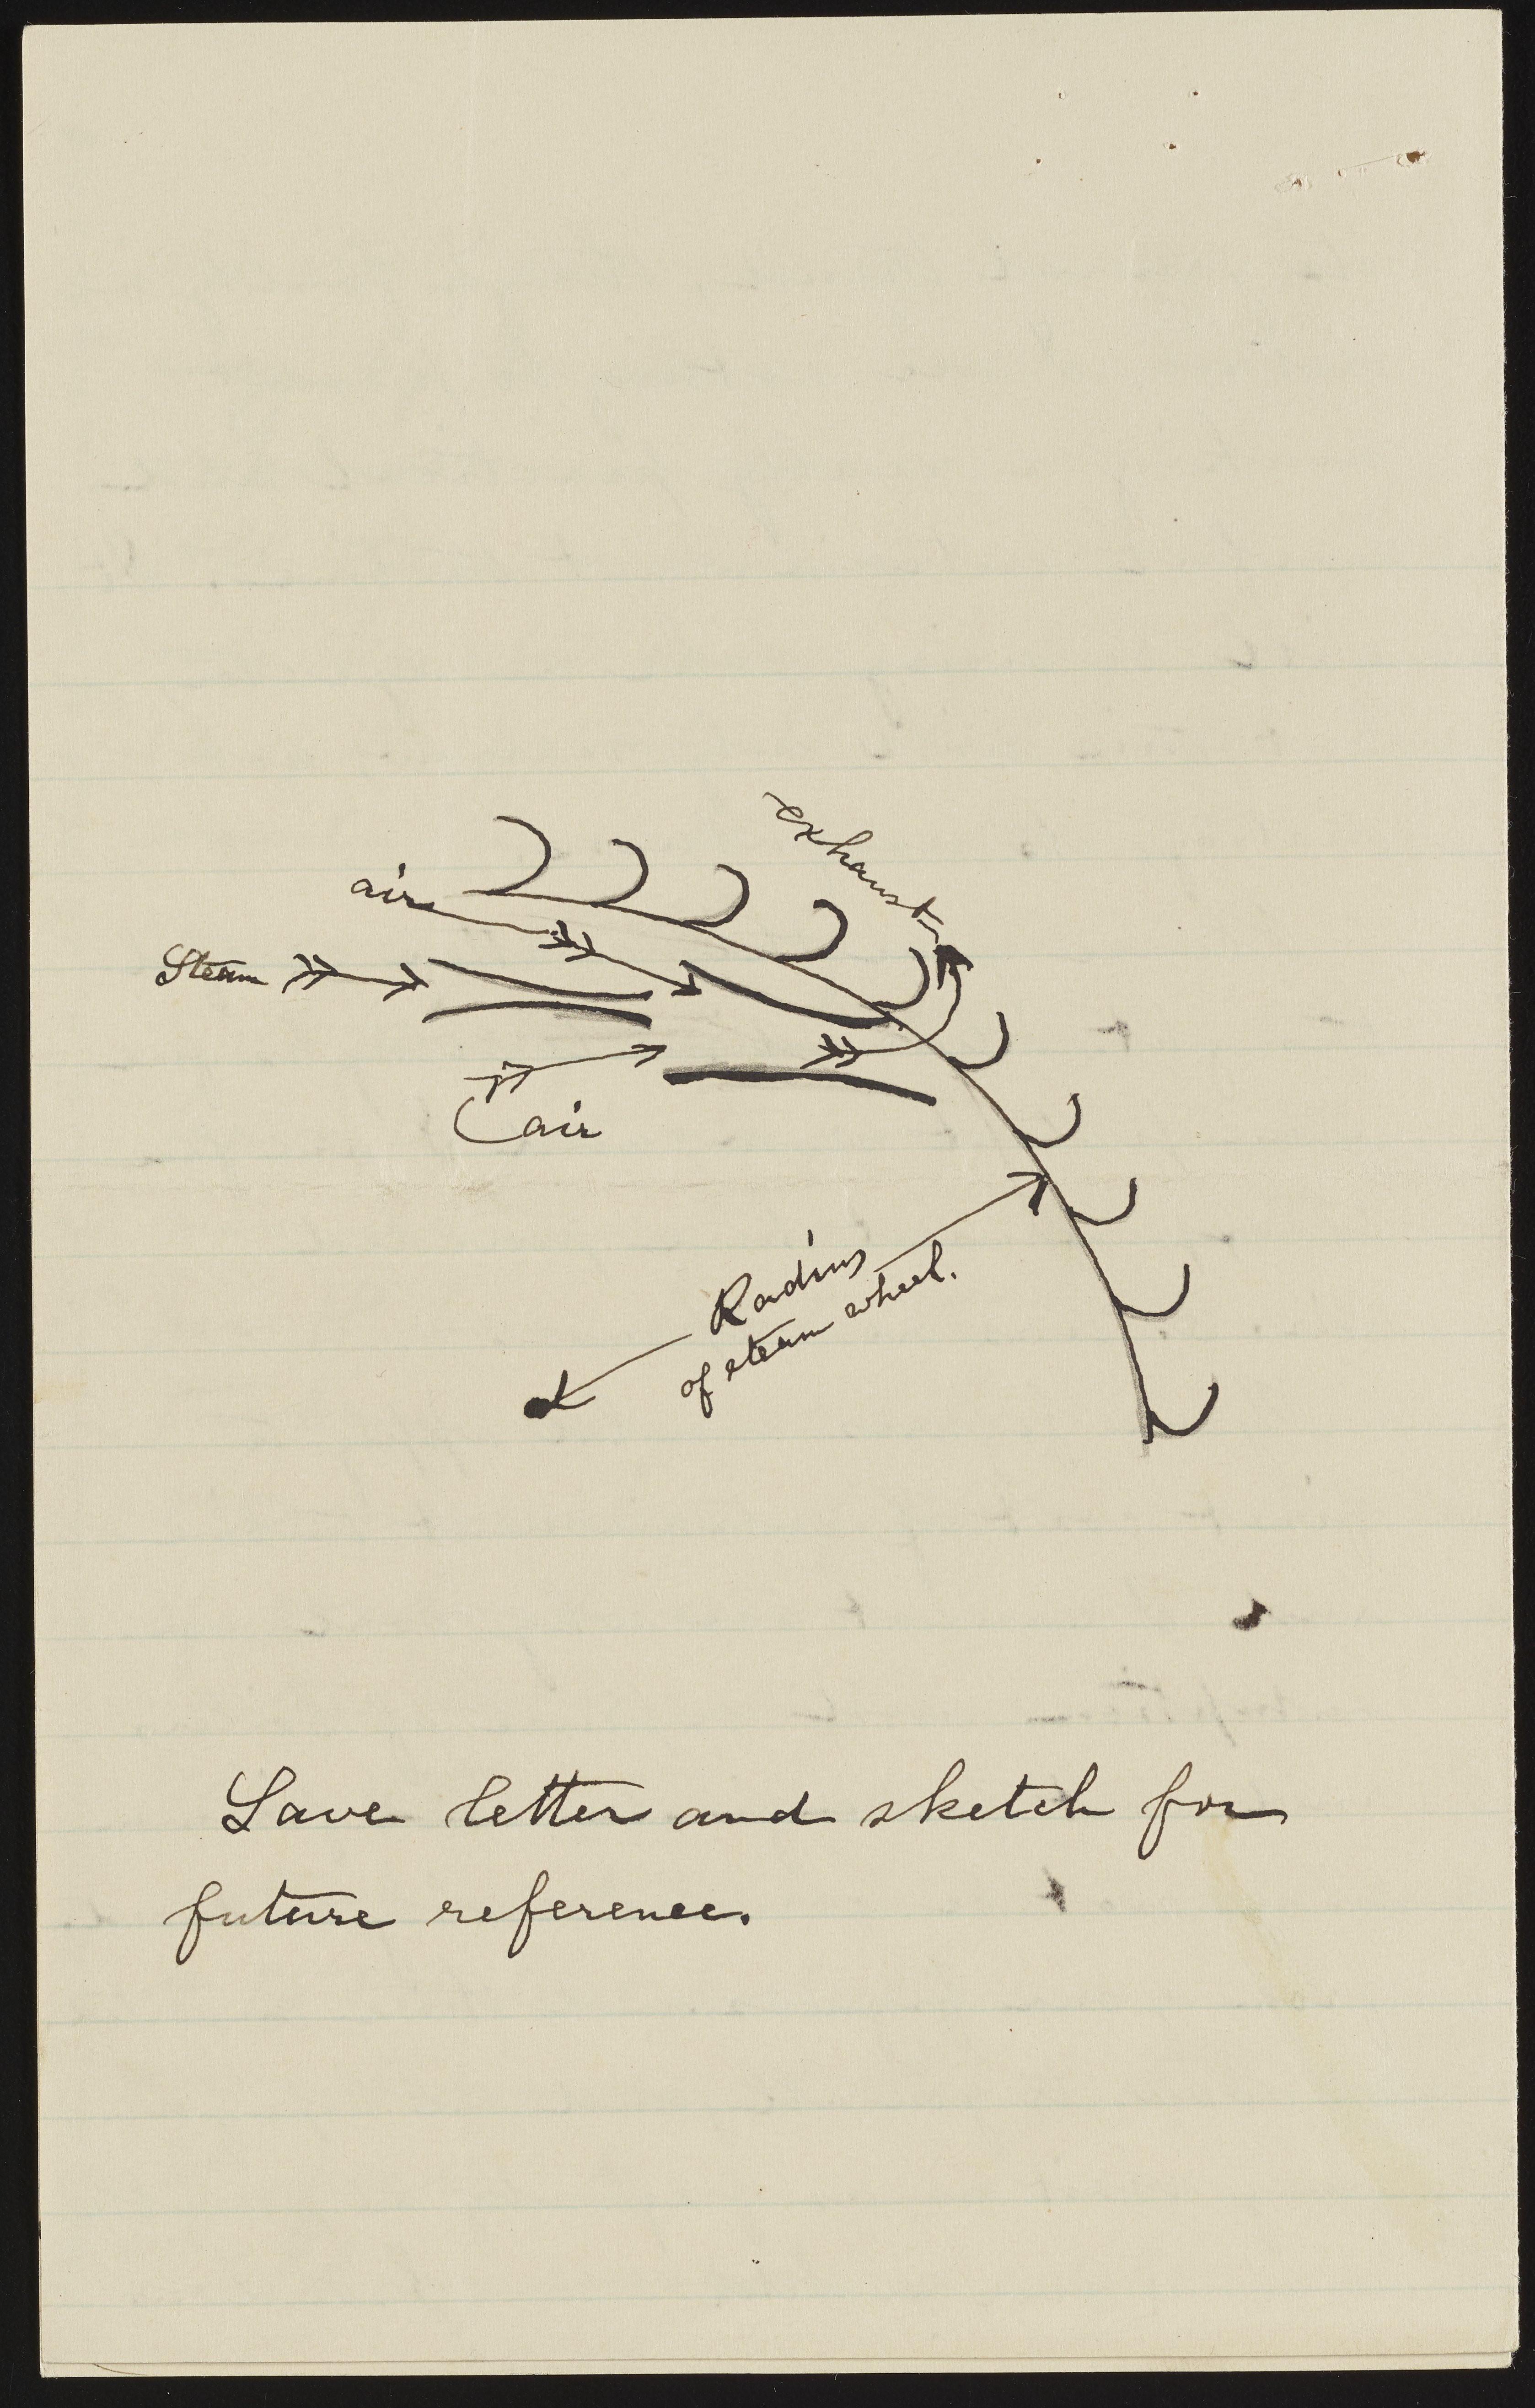 exhaust
air
Steam
air
Radius
of steam wheel.
Save letter and sketch for
future reference.